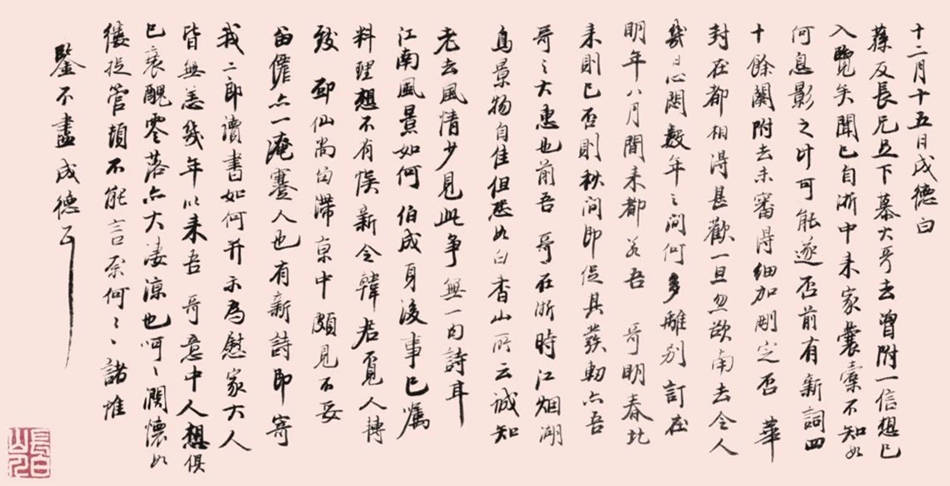 十二月十五日成德白
蓀友長兄足下慕大哥去曾附一信想已
入覽矣聞已自浙中來家囊橐不知如
何息影之計可能遂否前有新詞四
十餘闋附去未審得細加刪定否 華
封在都相得甚歡一旦忽欲南去令人
幾日心悶數年之間何多離別 訂在
明年八月間來都若吾 哥明春北
來則已否則秋間即促其發動亦吾
哥之大惠也前吾 哥在浙時江烟湖
鳥景物自佳但恐如白香山所云誠知
老去風情少見此爭無一句詩耳
江南風景如何 伯成身後事已囑
料理想不有悮新令韓君覓人轉
致 仙尚勾滯京中頗見不妥
留僊亦一淹蹇人也有新詩即寄
我二郎讀書如何并示為慰家大人
皆無恙幾年以來吾 哥意中人想俱
已衰醜零落亦大淒涼也呵〻闊懷如
縷捉管頓不能言奈何〻〻諸惟
鑒不盡成德